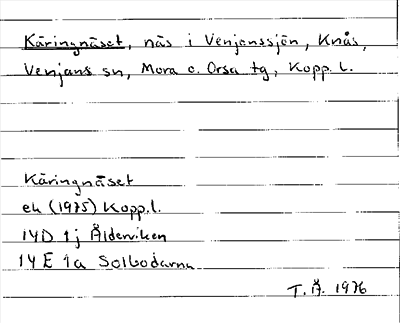 Käringnäset, näs i Venjanssjön, Knås,
Venjans sn, Mora o. Orsa tg, Kopp. l.
Käringnäset
ek (1975) Kopp.l.
14D 1j Ålderviken
14E 1a Solbodarna
T.Å. 1976